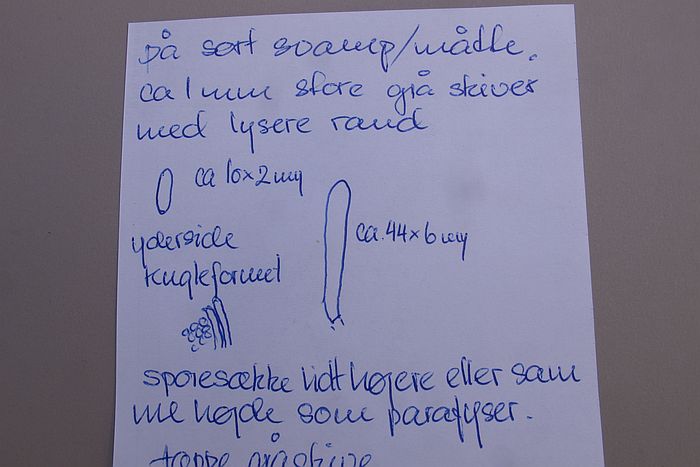 på sort svamp/måtte.
ca 1 mm store grå skiver
med lysere rand
ca 10x2 my
ca. 44x6 my
yderside
kugleformet
sporesække lidt højere eller sam
me højde som parafyser.